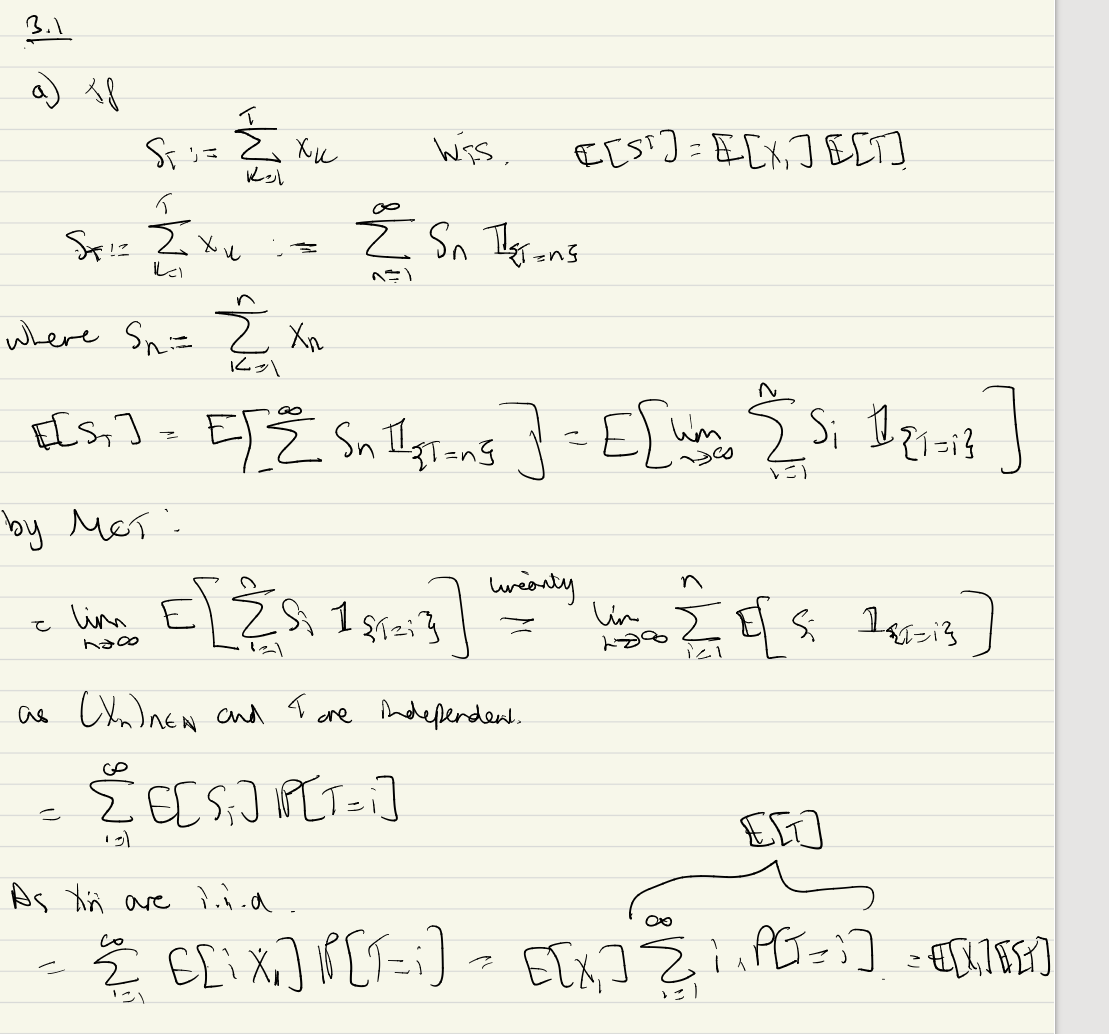 3.1
a) If
S_T := \sum_{k=1}^{T} X_k WTS. E[S^T] = E[X_1] E[T]
S_T := \sum_{k=1}^{T} X_k := \sum_{n=1}^{\infty} S_n 𝟙_{\{T=n\}}
where S_n := \sum_{k=1}^{n} X_n
E[S_T] = E[\sum^{\infty} S_n 𝟙_{\{T=n\}}] = E[\lim_{n→∞} \sum_{i=1}^{n} S_i 𝟙_{\{T=i\}}]
by MCT :
= \lim_{n→∞} E[\sum_{i=1}^{n} S_i 𝟙_{\{T=i\}}] \overset{linearity}{=} \lim_{n→∞} \sum_{i=1}^{n} E[S_i 𝟙_{\{T=i\}}]
as (X_n)_{n∈N} and T are independent.
= \sum_{i=1}^{\infty} E[S_i] P[T=i]
E[T]
As X_n are i.i.d.
= \sum_{i=1}^{\infty} E[i X_1] P[T=i] = E[X_1] \sum_{i=1}^{\infty} i . P[T=i] = E[X_1] E[T]